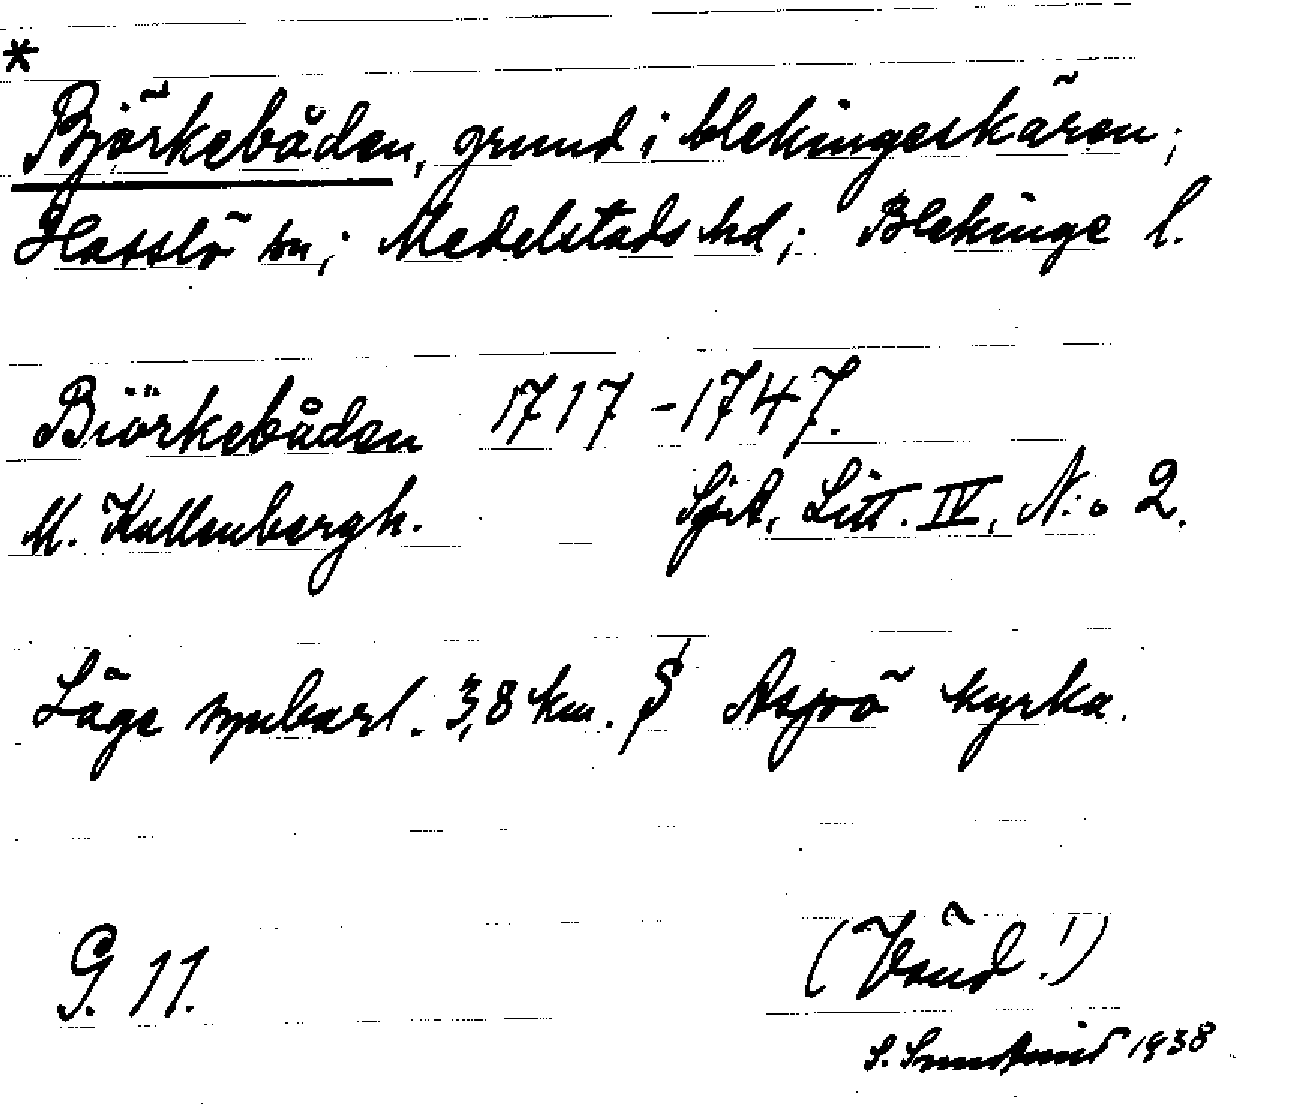 *
Björkebåden, grund i blekingeskären;
Hasslö sn; Medelstads hd; Blekinge l.
Biörkebåden 1717-1747.
M. Kallenbergh. SjA, Litt. IV, N:o 2.
Läge synbarl. 3,8 km. S Aspö kyrka.
G. 11. (Vänd!)
S. 1938